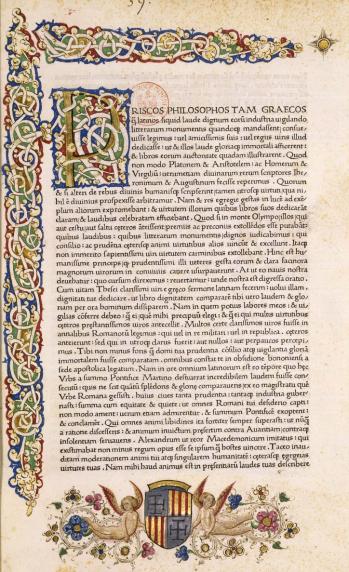 37.
PRISCOS PHILOSOPHOS TAM GRAECOS
q̃ latinos siquid laude dignum eorũ industria uigilando
litterarum monumentis quandocq mandassent: consue
uisse legimus: uel amicissimis suis: uel regiis uiris illud
dedicasse: ut &illos laude gloriacq immortali afficerent:
& libros eorum auctoritate quadam illustrarent. Quod
non modo Platonem & Aristotelem: ac Homerum &
Virgiliũ: uerumetiam diuinarum rerum scriptores Ihe
ronimum & Augustinum fecisse repertmus. Quorum
& si alteri de rebus diuinis humanisq scripserint tamen
bil e diuinius prospexisse arbitramur. Nam & res egregie gestas in lucẽ ad exẽ
plum aliorum exprimebant: & uirtutem illorum quibus libros suos dedicarãt
claram & laudibus celebratam efficiebant. Quod si in monte
quibus laudibus: quibus litterarum monumentis dignos iudicabimus: qui
consilio: ac prudẽtia cęterisq animi uirtutibus alios uincũt & excellunt. Itaq
non immerito sapientissimi uiri uirtutem carminibus extollebant. Hinc est
manissime princeps
magnorum uirorum in conuiuiis canere usurpauerunt. At ut eo nauis nostra
deuehatur: quo cursum direximus: reuertamur: unde nostra est digressa oratio.
Cum uitam Thesei clarissimi uiri e grẹco sermonẹ latinam fecerim: uolui illam
dignitati tuẹ dedicare. ut libro dignitatem compararẽ tibi uero laudem & glo
riam per ora hominum dissiparem. Nam in quem potius labores meos: & ui
gilias cõferre debeo: q̃ ei qui mihi precipuus eligi: & q̃ ei qui multis uirtutibus
cęteros prestantissimos uiros antecellit. Multos certe clarissimos uiros fuisse in
annalibus Romanorũ legimus: qui uel in re militari: uel in republica. cęteros
anteierunt: sed qui in utrocq clarus fuerit: aut nullos: aut perpaucos percipi-
mus. Tibi non minus foris q̃ domi tua prudentia cõsilio atq uigilantia gloriã
immortalem fuisse comparatam. omnibus constat: in obsidione bononiensi a
sede apostolica legatum. Nam in ore omnium latinorum est eo tẽpore quo hẹc
Vrbs a summo Pontifice Martino destuerat incredibilem laudem fuisse con
secutũ: quis ne sat quidẽ splẽdoris & glorię comparauens ex eo magistratu quẽ
Vrbe Romana gessisti. huius ciues tanta prudentia: tantaq industria guber-
nasti: summa cum equitate & quiete: ut omnes Romani tui desiderio capti:
non modo ament: uerum etiam admirentur. & summum Pontificẽ exoptent:
& conclamãt. Qui omnes animi libidines ita fortiter semper superasti: ut nũq
a ratione discesseris: & animum inuictum presertim contra Auaritiam: contracq
insolentiam seruaueris. Alexandrum ut reor Macedemonicum imitatus: qui
existimabat non minus regium opus esse se ipsum q̃ hostes uincere. Taceo inau-
ditam moderationem animi tui atq singularem humanitatẽ: cęterasq egregias
uirtutes tuas. Nam mihi haud animus est in presentiarũ laudes tuas describere